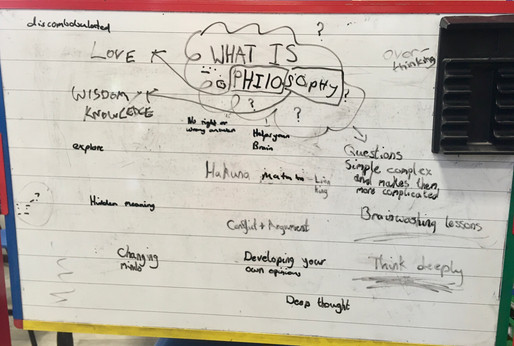 discombobulated
LOVE
WHAT IS
PHILOSOPHY
?
?
?
?
over-
thinking
WISDOM
KNOWLEDGE
No right or
wrong answer
Helps your
Brain
explore
Questions
Simple complex
and makes them
more complicated
Hakuna matata - Lion
King
?
Hidden meaning
Brainwashing lessons
Conflict + Argument
Changing
minds
Developing your
own opinions
Think deeply
Deep thought